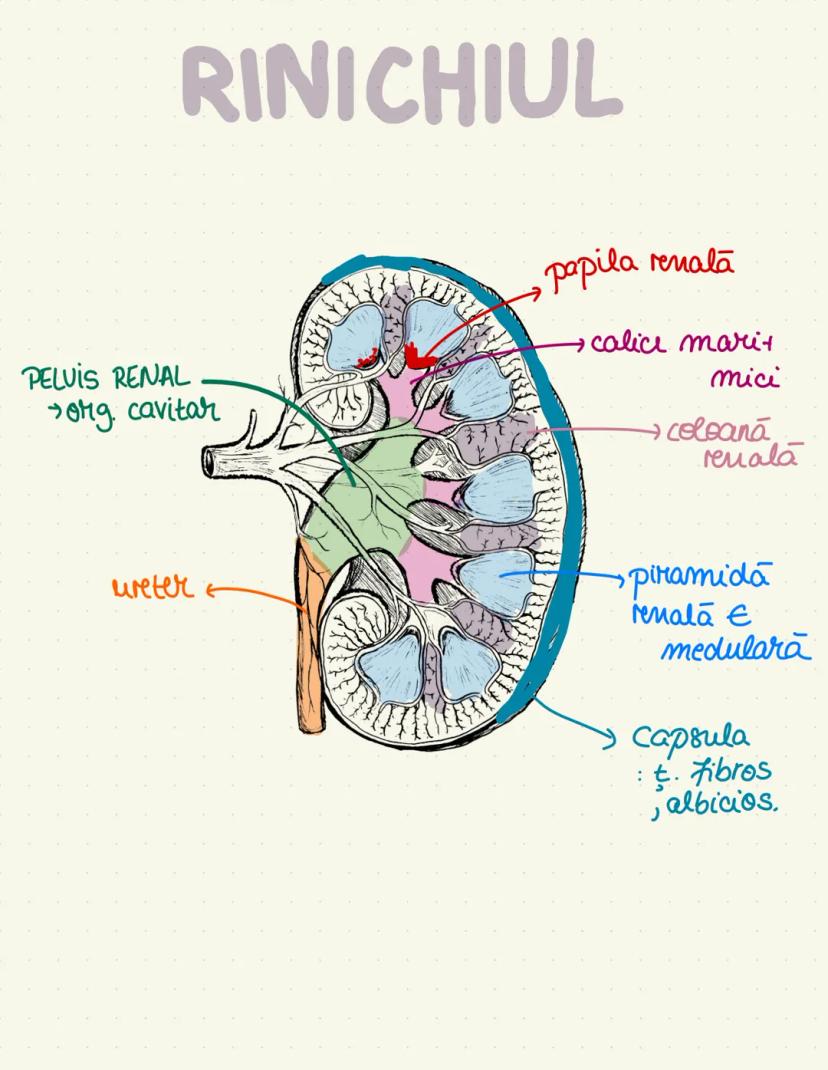 RINICHIUL
papila renală
calice mari+
mici
PELVIS RENAL
→org. cavitar
coloană
renală
ureter
piramidă
renală ∈
medulară
Capsula
: ț. fibros
, albicios.